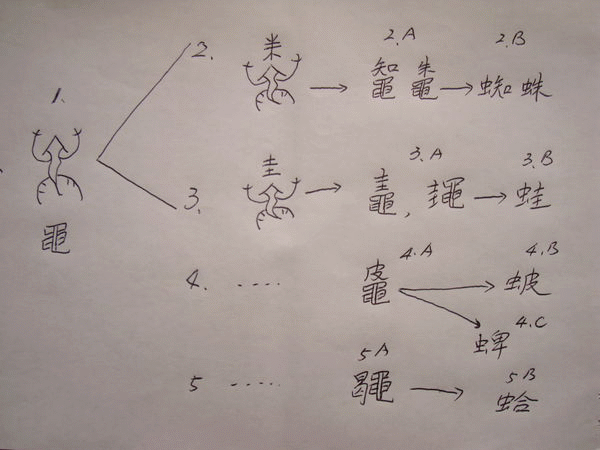 2.A 2.B
2. 鼅 鼄 蜘 蛛
1.
3.A 3.B
3. 圭 鼃, 䵷 蛙
黽
4.A 4.B
4. ····· 蚾
4.C
蜱
5A 5B
5 ·····
蛤